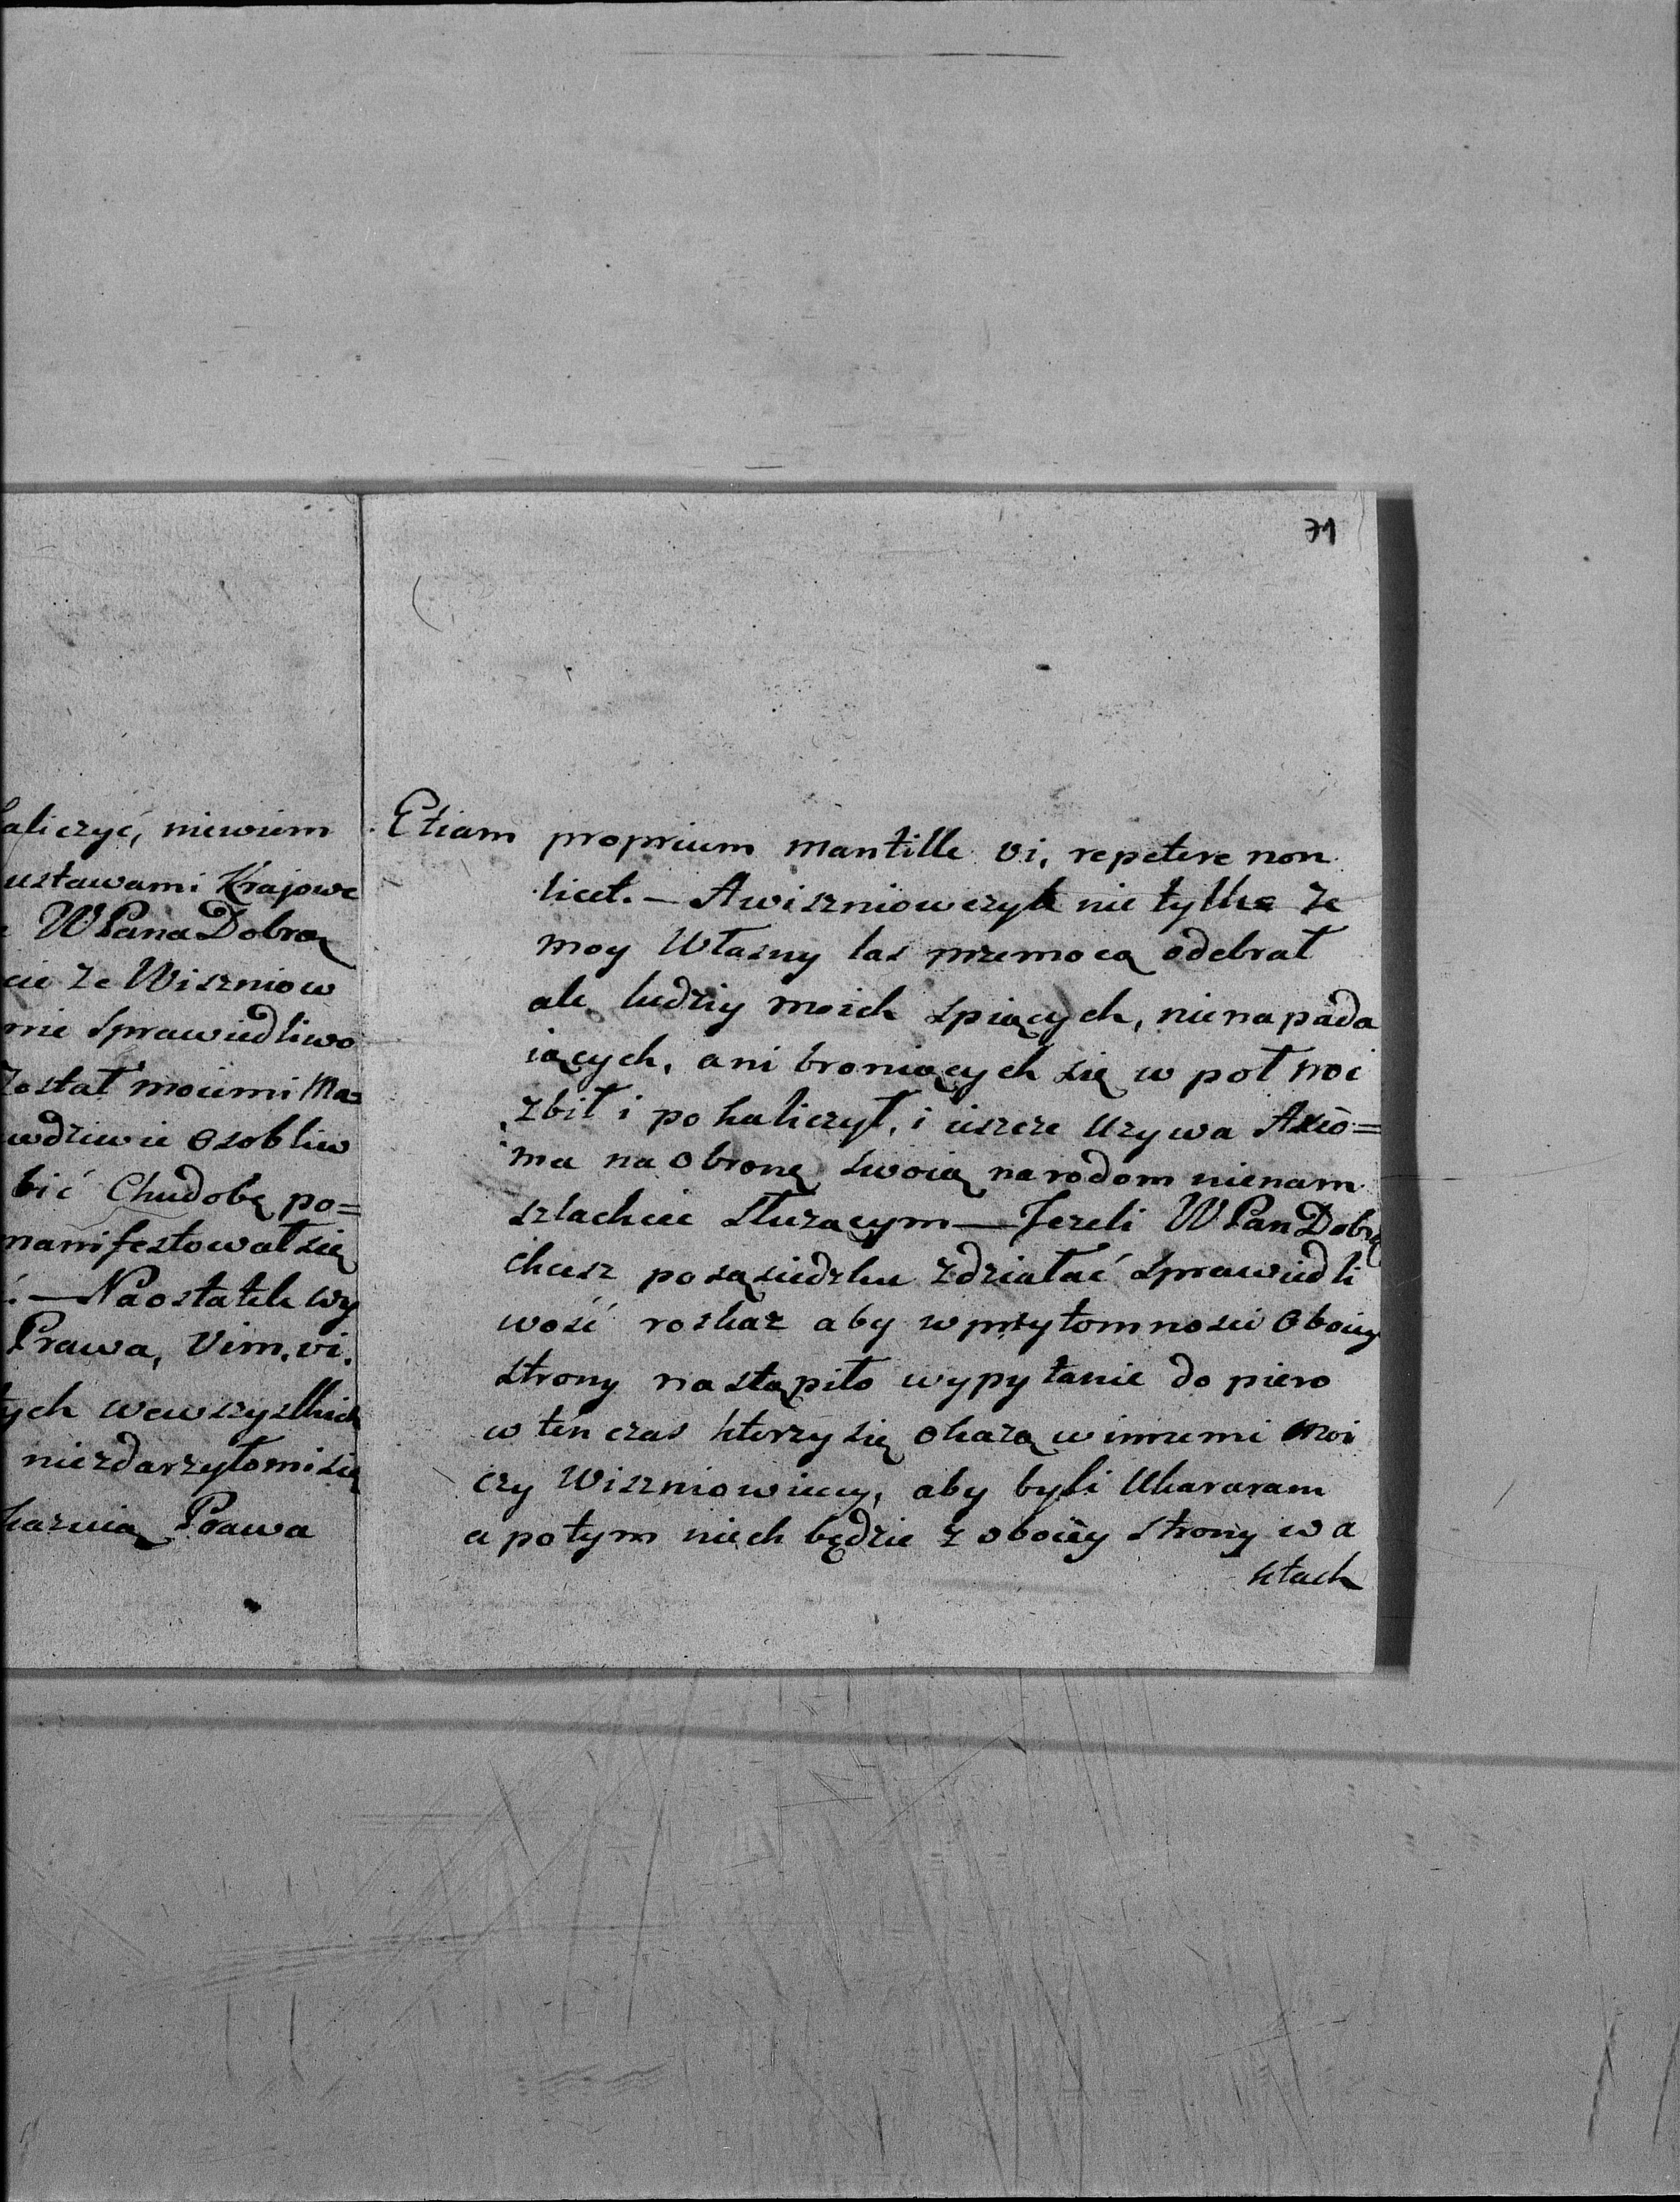 71
aliczyć, niewiem
ustawami Krajowe
WPana Dobroą
cie że Wiszniow
mie Sprawiedliwo
został moiemi Ma=
wdziwie Osobliw
bić Chudobę po=
manifestował się
.— Naostatek wy
Prawa, Vim, vi.
tych wewszystkich
niezdarzyło mi się
kaznią Prawa
Etiam proprium mantille vi, repetere non
licet. — A wiszniowczyk nie tylko że
moy Własny las przemocą odebrał
ale ludziy moich spiących, nienapada
iących, ani broniących się w poł noci
zbił i pokaliczył, i ieszcze Uzywa Axio=
ma na obronę swoią narodom nienam
szlachcie służącym — Jezeli WPan Dobrą
chcesz posąsiedzku zdziałać Sprawiedli
wość roskaż aby w przytomnosci Oboiey
strony nastąpiło wypytanie do piero
w ten czas ktorzy się okażą winnemi moi
czy Wiszniowieccy, aby byli Ukararam
a potym niech będzie z oboiey strony w a
ktach